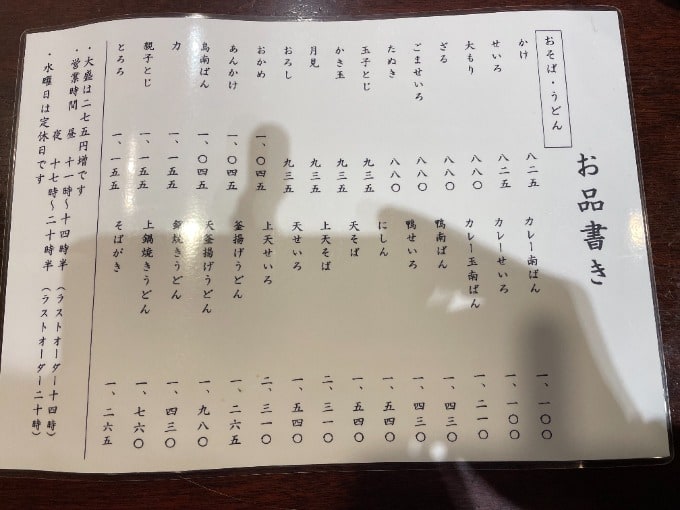 お品書き
おそば・うどん
かけ 八二五
せいろ 八二五
大もり 八八〇
ざる 八八〇
ごませいろ 八八〇
たぬき 八八〇
玉子とじ 九三五
かき玉 九三五
月見 九三五
おろし 九三五
おかめ 一、〇四五
あんかけ 一、〇四五
鳥南ばん 一、〇四五
力 一、一五五
親子とじ 一、一五五
とろろ 一、一五五
カレー南ばん 一、一〇〇
カレーせいろ 一、一〇〇
カレー玉南ばん 一、二一〇
鴨南ばん 一、四三〇
鴨せいろ 一、四三〇
にしん 一、五四〇
天そば 一、五四〇
上天そば 二、三一〇
天せいろ 一、五四〇
上天せいろ 二、三一〇
釜揚げうどん 一、二六五
天釜揚げうどん 一、九八〇
鍋焼きうどん 一、四三〇
上鍋焼きうどん 一、七六〇
そばがき 一、二六五
・大盛は二七五円増です
・営業時間 昼 十一時〜十四時半 (ラストオーダー十四時)
夜 十七時〜二十時半 (ラストオーダー二十時)
・水曜日は定休日です